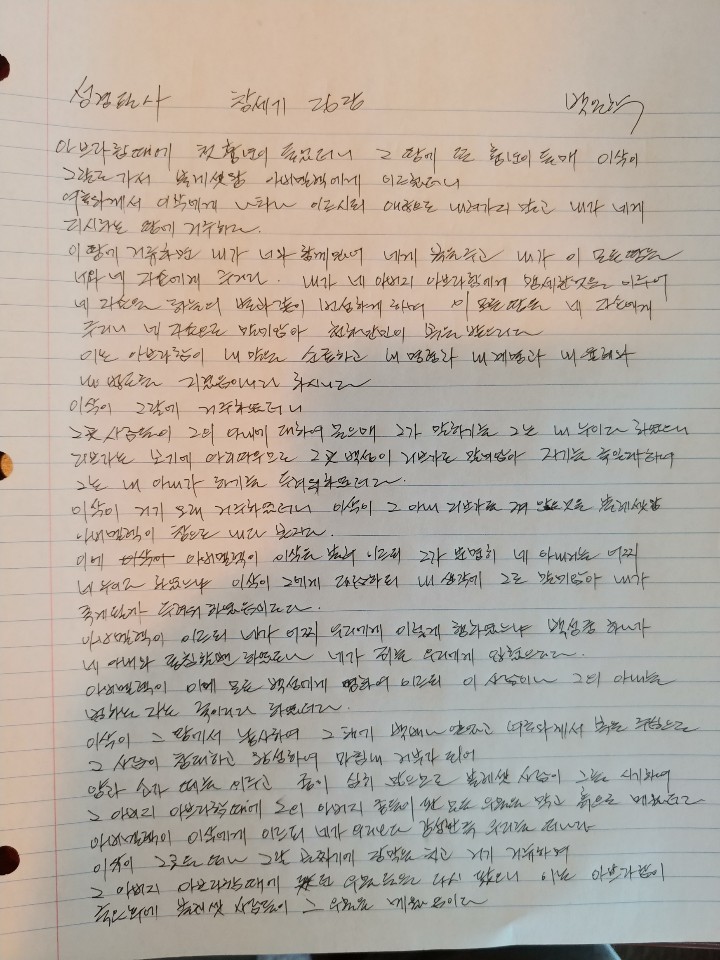 성경필사 창세기 26장
아브라함 때에 첫 흉년이 들었더니 그 땅에 또 흉년이 들매 이삭이
그랄로 가서 블레셋 왕 아비멜렉에게 이르렀더니
여호와께서 이삭에게 나타나 이르시되 애굽으로 내려가지 말고 내가 네게
지시하는 땅에 거주하라.
이 땅에 거류하면 내가 너와 함께 있어 네게 복을 주고 내가 이 모든 땅을
너와 네 자손에게 주리라. 내가 네 아버지 아브라함에게 맹세한 것을 이루어
네 자손을 하늘의 별과 같이 번성하게 하며 이 모든 땅을 네 자손에게
주리니 네 자손으로 말미암아 천하 만민이 복을 받으리라
이는 아브라함이 내 말을 순종하고 내 명령과 내 계명과 내 율례와
내 법도를 지켰음이니라 하시니라
이삭이 그랄에 거주하였더니
그곳 사람들이 그의 아내에 대하여 물으매 그가 말하기를 그는 내 누이라 하였으니
리브가는 보기에 아리따우므로 그곳 백성이 리브가로 말미암아 자기를 죽일까하여
그는 내 아내라 하기를 두려워하였더라.
이삭이 거기 오래 거주하였더니 이삭이 그 아내 리브가를 껴 안은 것을 블레셋 왕
아비멜렉이 창으로 내다 본지라.
이에 아비멜렉이 이삭을 불러 이르되 그가 분명히 네 아내거늘 어찌
네 누이라 하였느냐 이삭이 그에게 대답하되 내 생각에 그로 말미암아 내가
죽게 될까 두려워 하였음이로라.
아비멜렉이 이르되 네가 어찌 우리에게 이렇게 행하였느냐 백성중 하나가
네 아내와 동침할뻔 하였도다 네가 죄를 우리에게 입혔으리라.
아비멜렉이 이에 모든 백성에게 명하여 이르되 이 사람이나 그의 아내를
범하는 자는 죽이리라 하였더라.
이삭이 그 땅에서 농사하여 그 해에 백배나 얻었고 여호와께서 복을 주시므로
그 사람이 창대하고 왕성하여 마침내 거부가 되어
양과 소가 떼를 이루고 종이 심히 많으므로 블레셋 사람이 그를 시기하여
그 아버지 아브라함 때에 그 아버지 종들이 판 모든 우물을 막고 흙으로 메웠더라
아비멜렉이 이삭에게 이르되 네가 우리보다 강성한즉 우리를 떠나라
이삭이 그곳을 떠나 그랄 골짜기에 장막을 치고 거기 거류하며
그 아버지 아브라함 때에 팠던 우물들을 다시 팠으니 이는 아브라함이
죽은 후에 블레셋 사람들이 그 우물을 메웠음이라